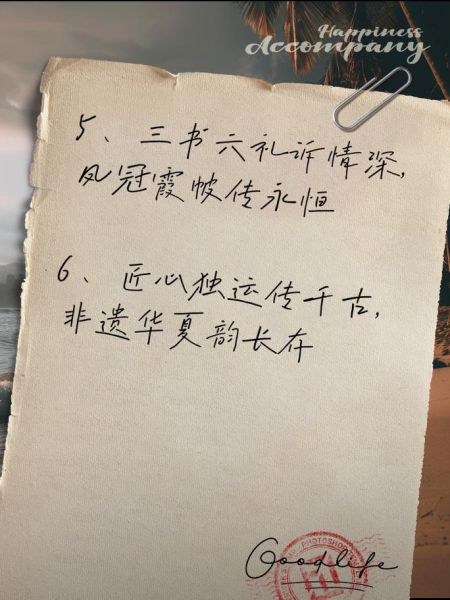 Happiness
Accompany
5、三书六礼诉情深,
凤冠霞帔传永恒
6、匠心独运传千古,
非遗华夏韵长存
Goodlife